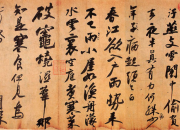 汙燕支雪闇中偷負
去夜半真有力何殊少
年子病起頭已白
春江欲入戶雨勢來
不已雨小屋如漁舟濛濛
水雲裏空庖煮寒菜
破竈燒濕葦那
知是寒食但見烏